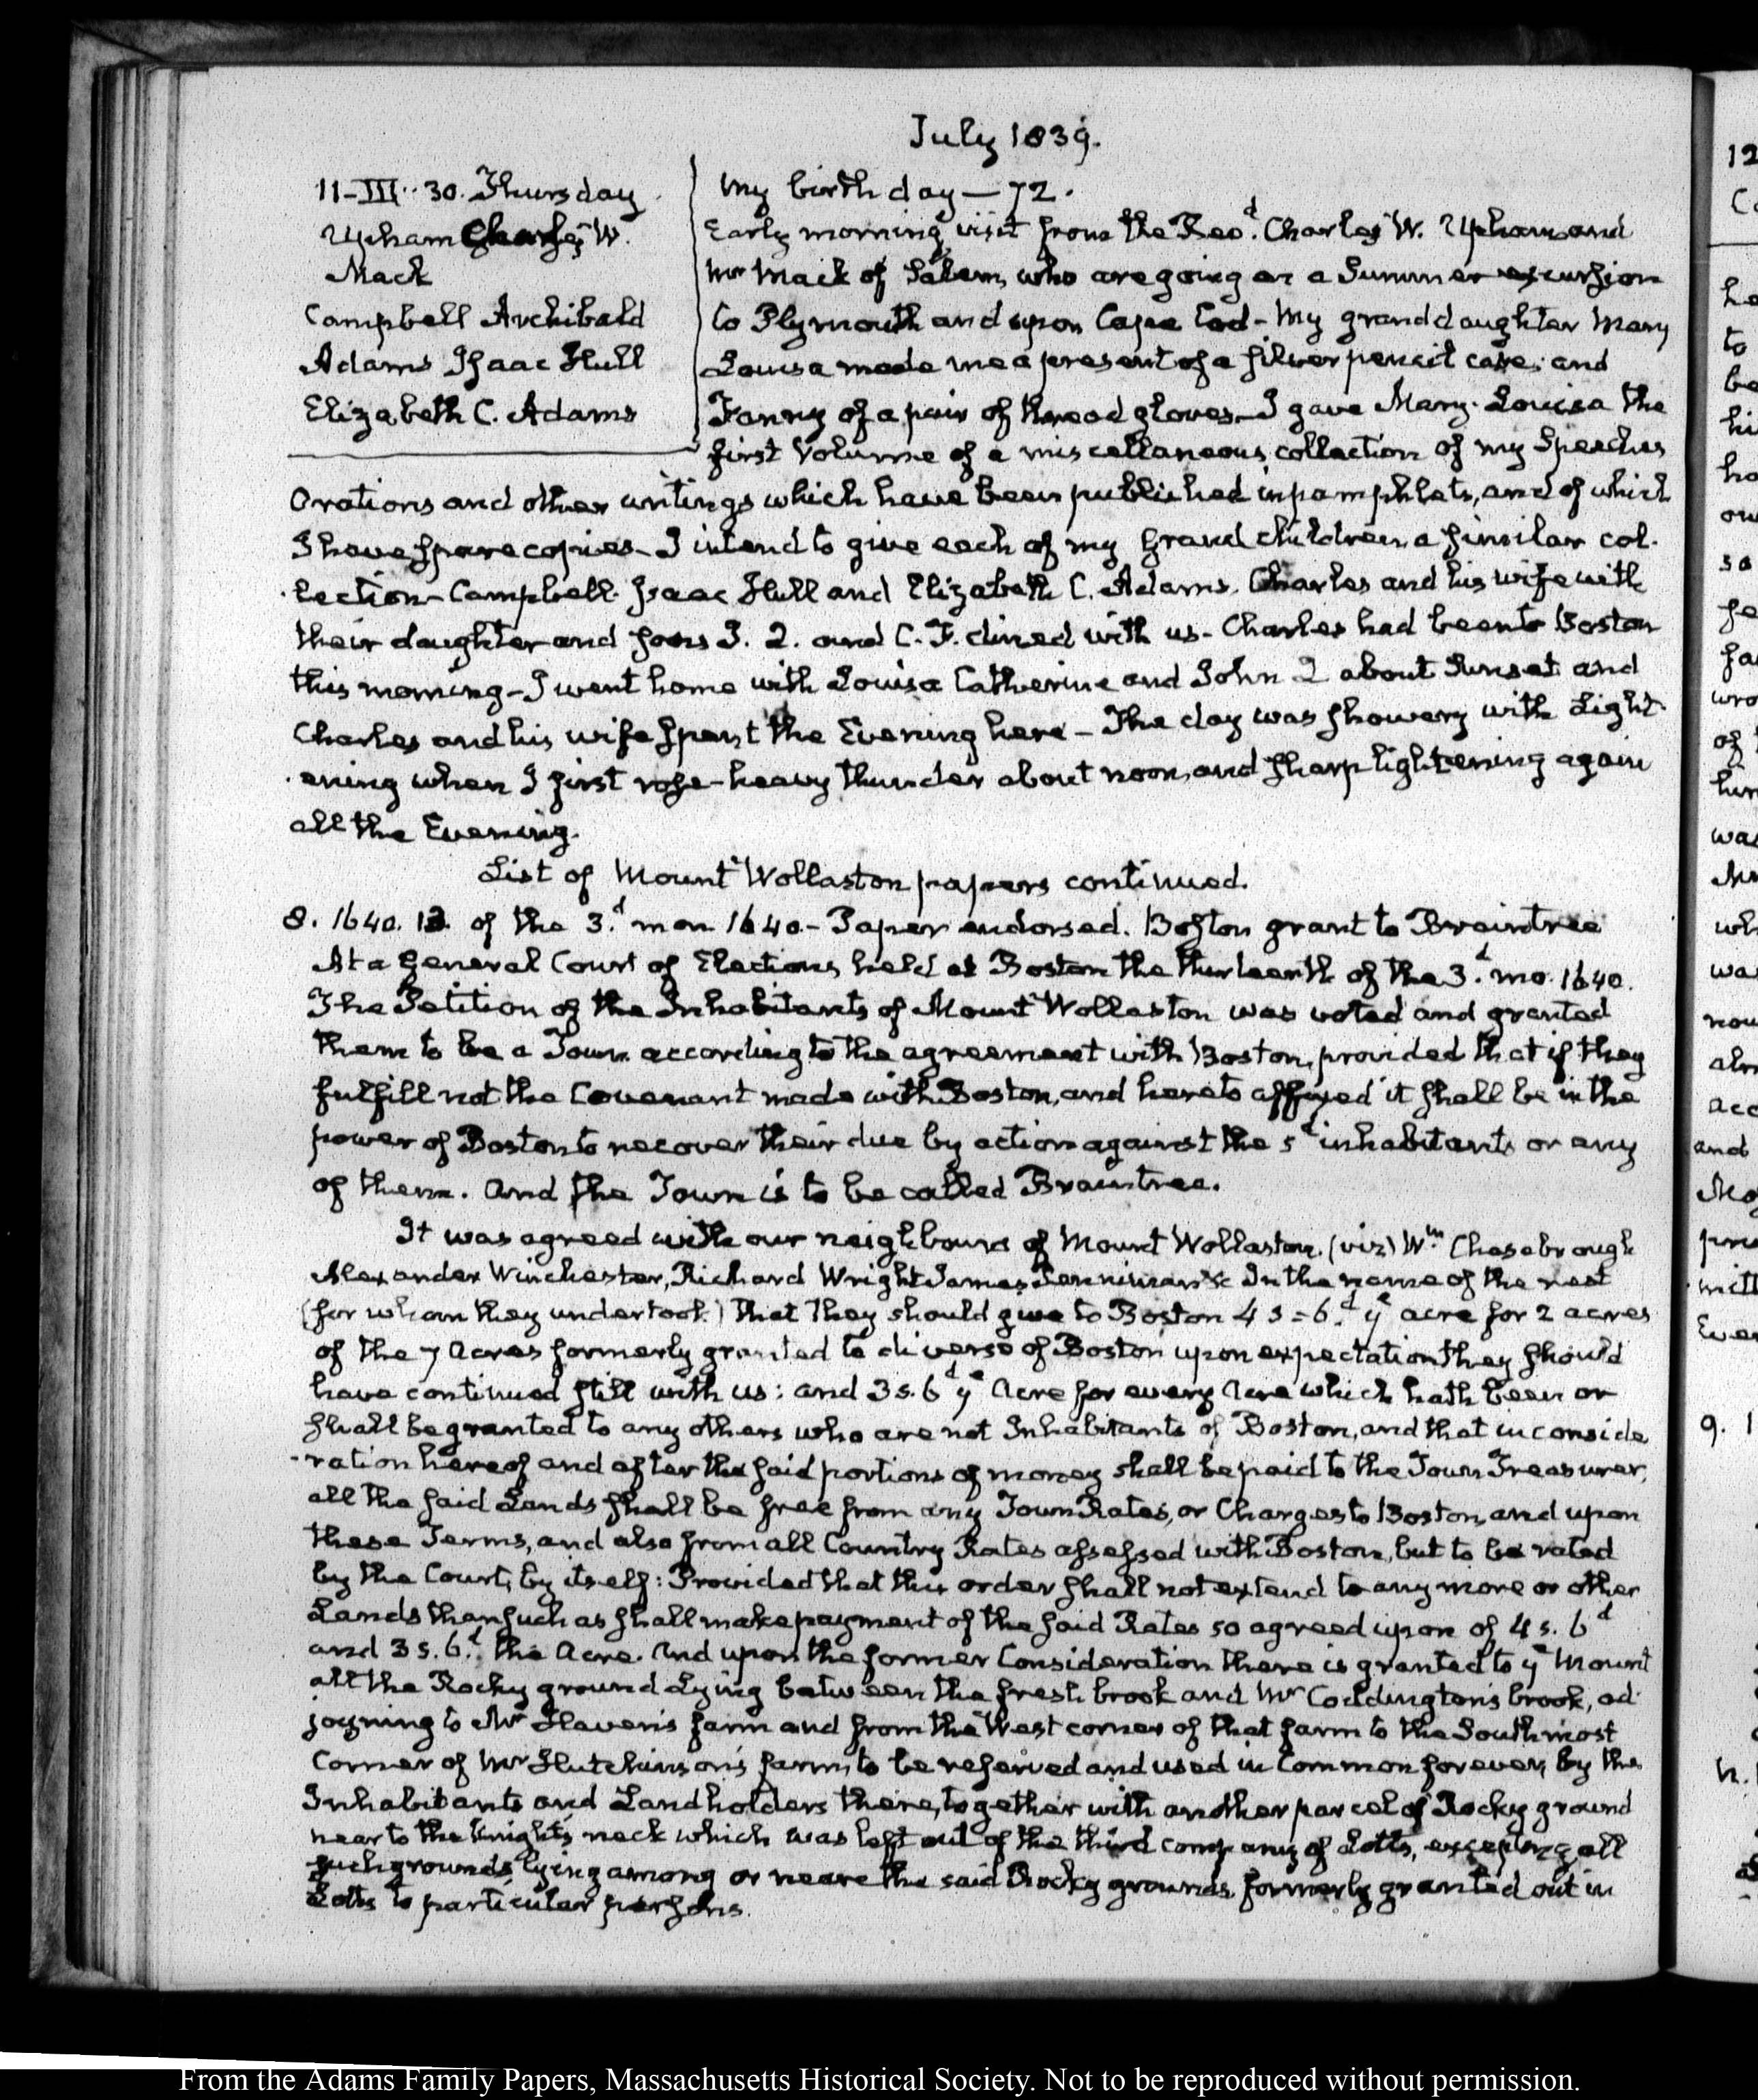 July 1839.
11-III..30. Thursday
Upham Charles W.
Mack
Campbell Archibald
Adams Isaac Hull
Elizabeth C. Adams
My birth day—72.
Early morning visit from the Revd. Charles W. Upham and
Mr Mack of Salem, who are going on a Summer excursion
to Plymouth and upon Cape Cod - My granddaughter Mary
Louisa made me a present of a silver pencil case; and
Fanny of a pair of thread gloves - I gave Mary-Louisa the
first Volume of a miscellaneous collection of my Speeches
Orations and other writings which have been published in pamphlets, and of which
I have spare copies - I intend to give each of my Grand children a similar col-
-lection - Campbell. Isaac Hull and Elizabeth C. Adams. Charles and his wife with
their daughter and sons J. Q. and C. F. dined with us - Charles had been to Boston
this morning - I went home with Louisa Catherine and John Q about Sunset and
Charles and his wife spent the Evening here - The day was showery with Light-
-ening when I first rose - heavy thunder about noon, and sharp lightening again
all the Evening.
List of Mount Wollaston papers continued.
8. 1640. 13. of the 3.d mon 1640. - Paper endorsed. Boston grant to Braintree
At a General Court of Elections held at Boston the thirteenth of the 3.d mo. 1640.
The Petition of the Inhabitants of Mount Wollaston was voted and granted
them to be a Town according to the agreement with Boston, provided that if they
fulfill not the Covenant made with Boston, and hereto affixed it shall be in the
power of Boston to recover their due by action against the sd inhabitants or any
of them. And the Town is to be called Braintree.
It was agreed with our neighbours of Mount Wollaston. (viz) Wm Chesebrough
Alexander Winchester, Richard Wright James Penniman &c In the name of the rest
(for whom they undertook) that they should give to Boston 4 s = 6.d ye acre for 2 acres
of the 7 Acres formerly granted to diverse of Boston upon expectation they should
have continued still with us: and 3 s. 6d ye Acre for every Acre which hath been or
shall be granted to any others who are not Inhabitants of Boston, and that in conside
-ration hereof and after the said portions of money shall be paid to the Town Treasurer,
all the said Lands shall be free from any Town Rates, or Charges to Boston, and upon
these Terms, and also from all Country Rates assessed with Boston, but to be rated
by the Court, by itself: Provided that this order shall not extend to any more or other
Lands than such as shall make payment of the said Rates so agreed upon of 4 s. 6d
and 3 s. 6.d the Acre. And upon the former Consideration there is granted to ye Mount
all the Rocky ground Lying between the fresh brook and Mr Coddington's brook, ad-
joyning to Mr Haven's farm and from the West corner of that farm to the Southmost
Corner of Mr Hutchinson's farm, to be reserved and used in Common forever, by the
Inhabitants and Landholders there, together with another parcel of Rocky ground
near to the Knights neck which was left out of the third company of Lotts, excepting all
such grounds lying among or neare the said Rocky grounds, formerly granted out in
Lotts to particular persons.
From the Adams Family Papers, Massachusetts Historical Society. Not to be reproduced without permission.